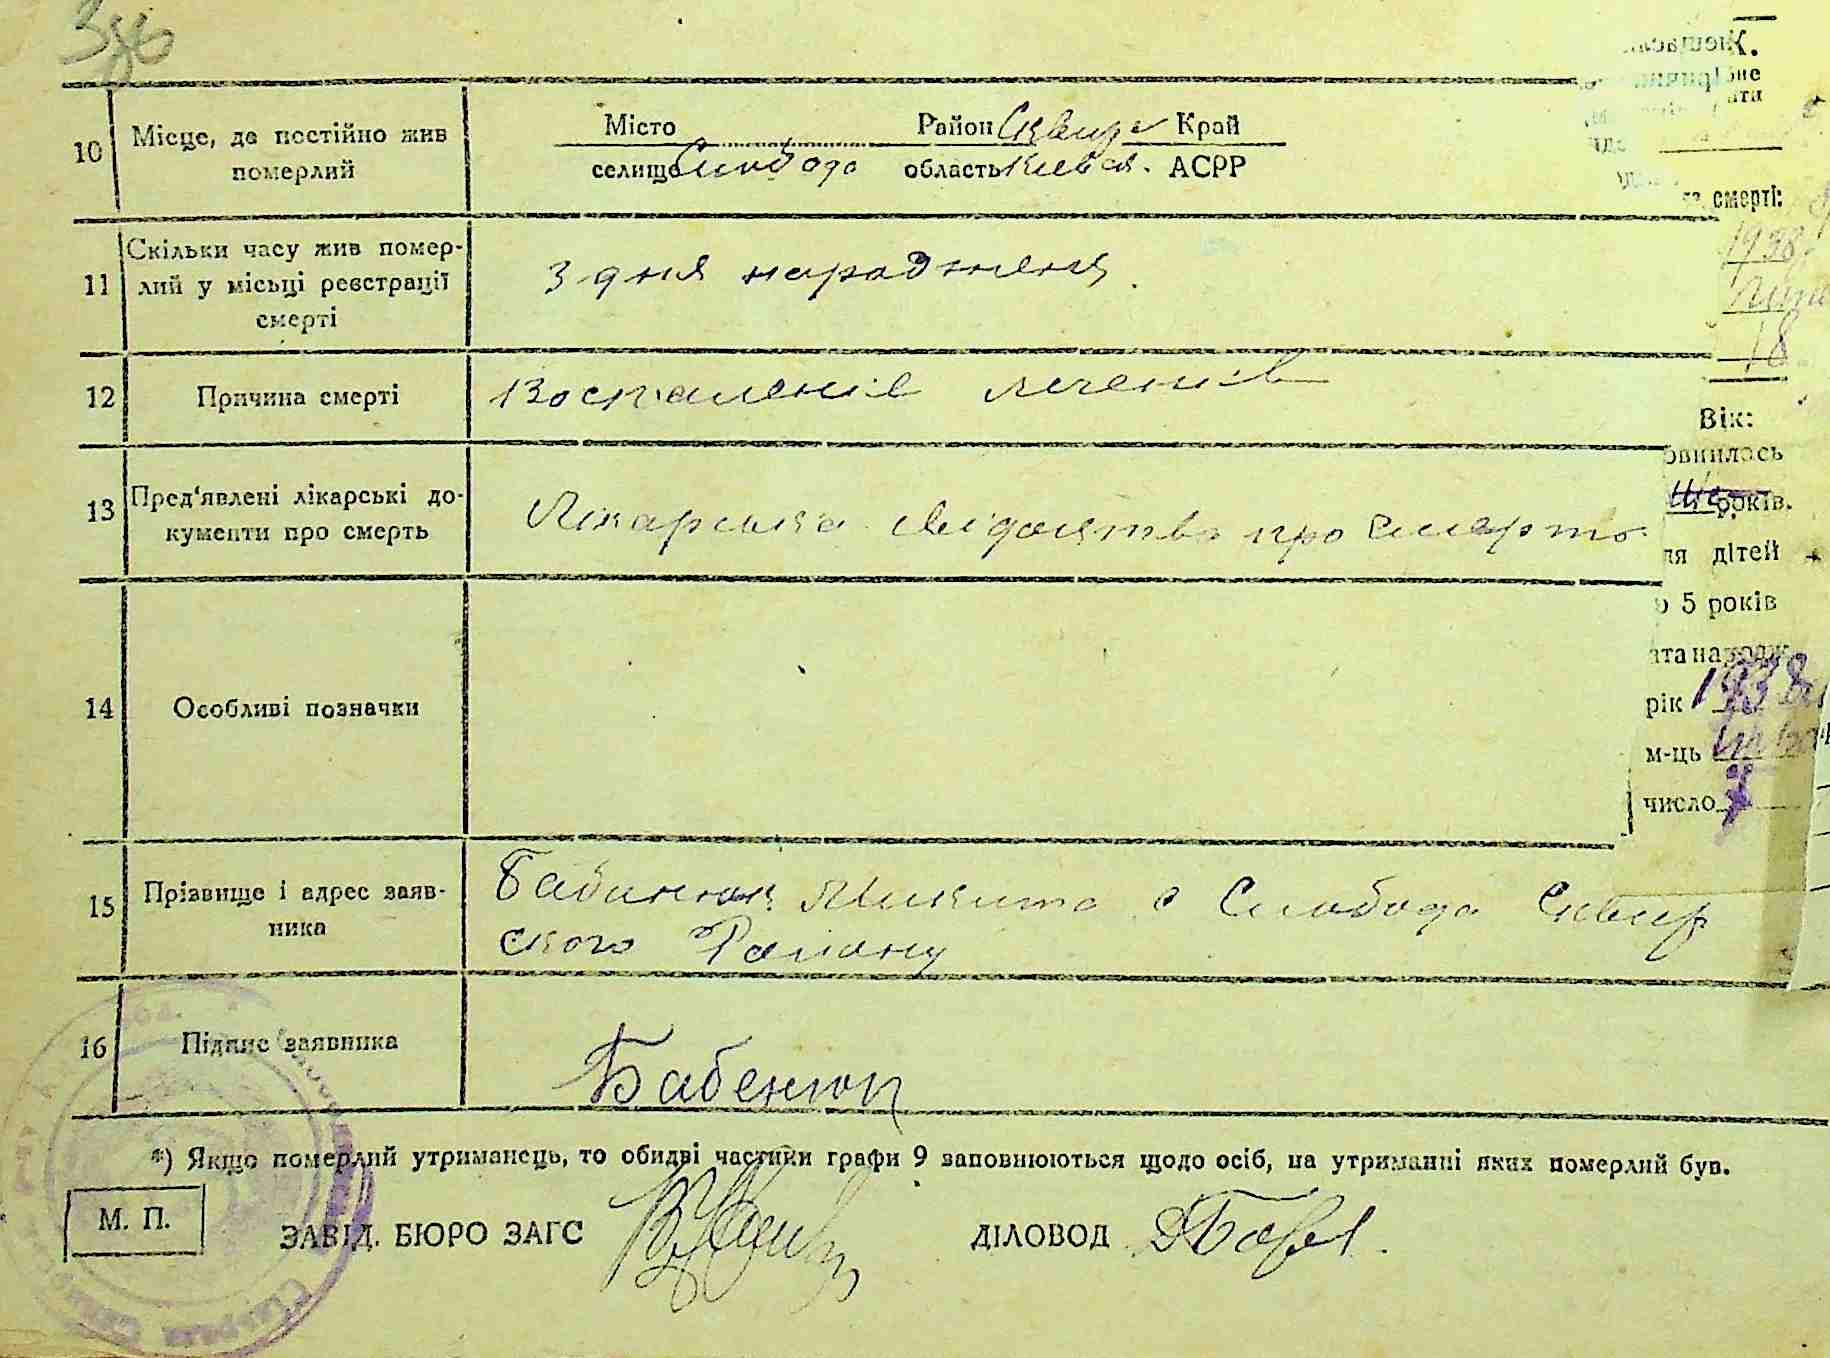 10 Місце, де постійно жив померлий
Місто Район Сквир Край
селище Слобода область Київск. АСРР
11 Скільки часу жив померлий у місьці реєстрації смерті
З дня народження
12 Причина смерті
Воспаление легений
13 Пред'явлені лікарські документи про смерть
Лікарська свідоцтво про смерть
14 Особливі позначки
15 Прізвище і адрес заявника
Бабинюк Микита с Слобода Сквир
ского Району
16 Підпис заявника
Бабенюк
*) Якщо померлий утриманець, то обидві частини графи 9 заповнюються щодо осіб, на утриманні яких померлий був.
М. П.
ЗАВІД. БЮРО ЗАГС
ДІЛОВОД
смерті:
1938
18
Вік:
років.
дітей
5 років
рік 1938
м-ць
число 7